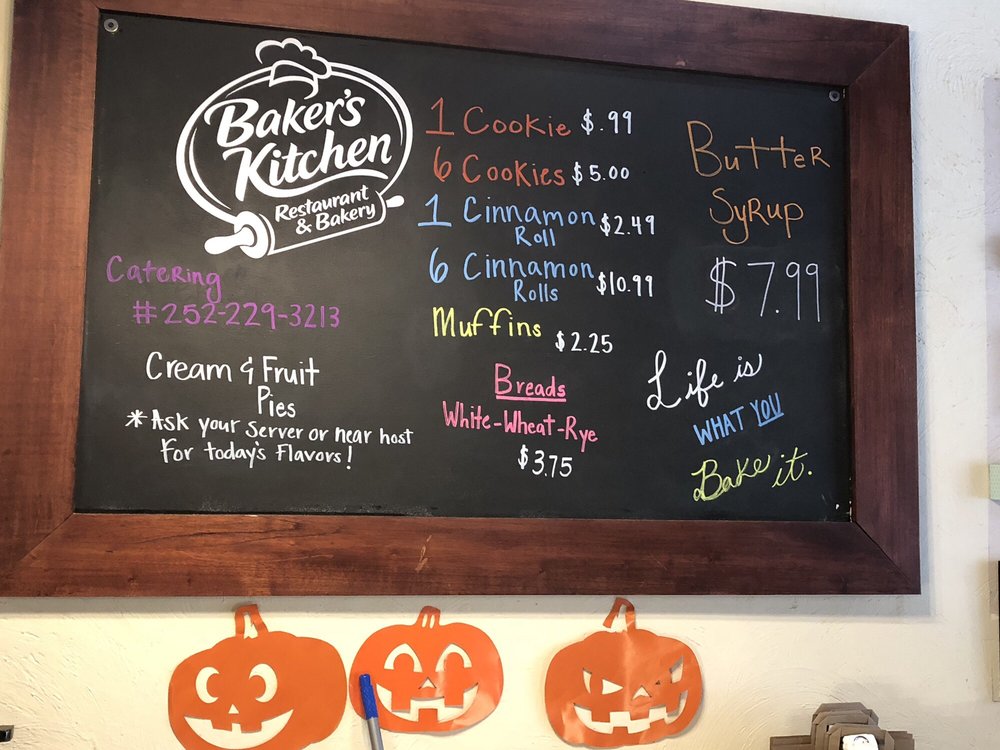 Baker's
Kitchen
Restaurant
& Bakery
Catering
#252-229-3213
Cream & Fruit
Pies
*Ask your server or near host
For today's Flavors!
1 Cookie $.99
6 Cookies $5.00
1 Cinnamon $2.49
Roll
6 Cinnamon $10.99
Rolls
Muffins $2.25
Breads
White-Wheat-Rye
$3.75
Butter
Syrup
$7.99
Life is
WHAT YOU
Bake it.